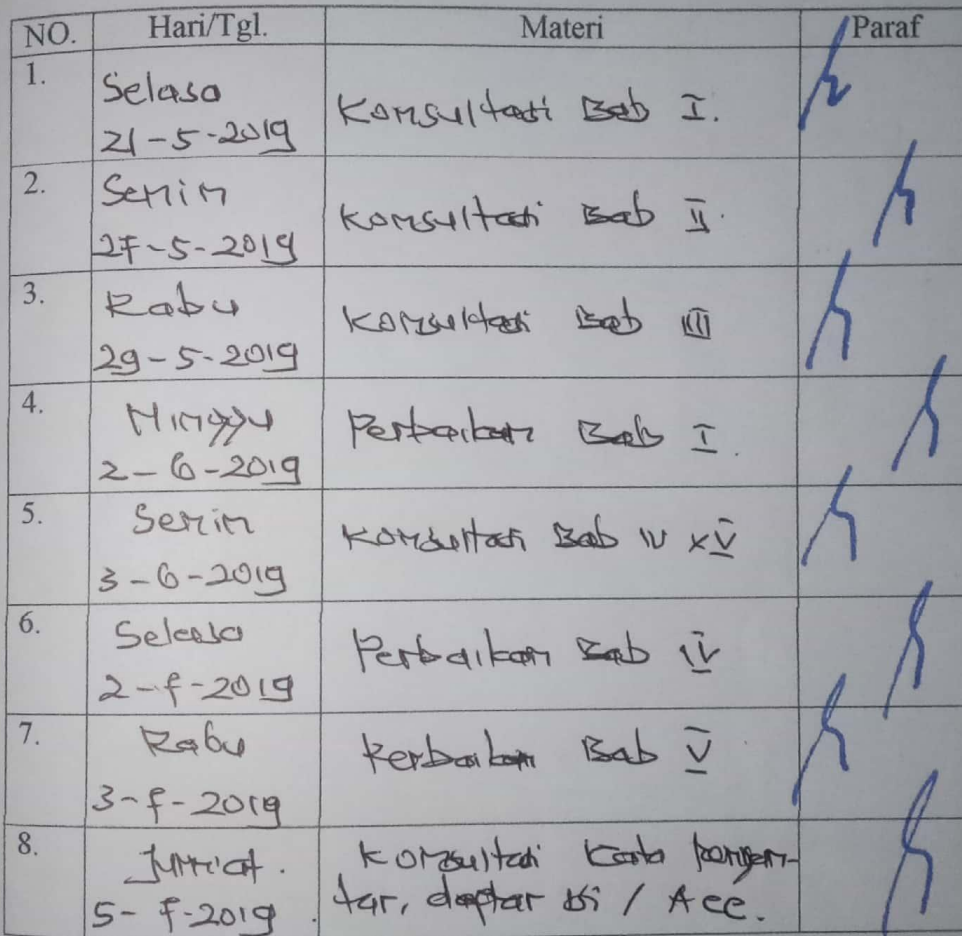 NO. Hari/Tgl. Materi Paraf
1. Selasa
21-5-2019 Konsultasi Bab I.
2. Senin
27-5-2019 Konsultasi Bab II.
3. Rabu
29-5-2019 Konsultasi Bab III
4. Minggu
2-6-2019 Perbaikan Bab I.
5. Senin
3-6-2019 Konsultasi Bab IV & V
6. Selasa
2-7-2019 Perbaikan Bab IV
7. Rabu
3-7-2019 Perbaikan Bab V
8. Jum'at. Konsultasi Kata pengan-
5-7-2019. tar, daftar isi / Acc.